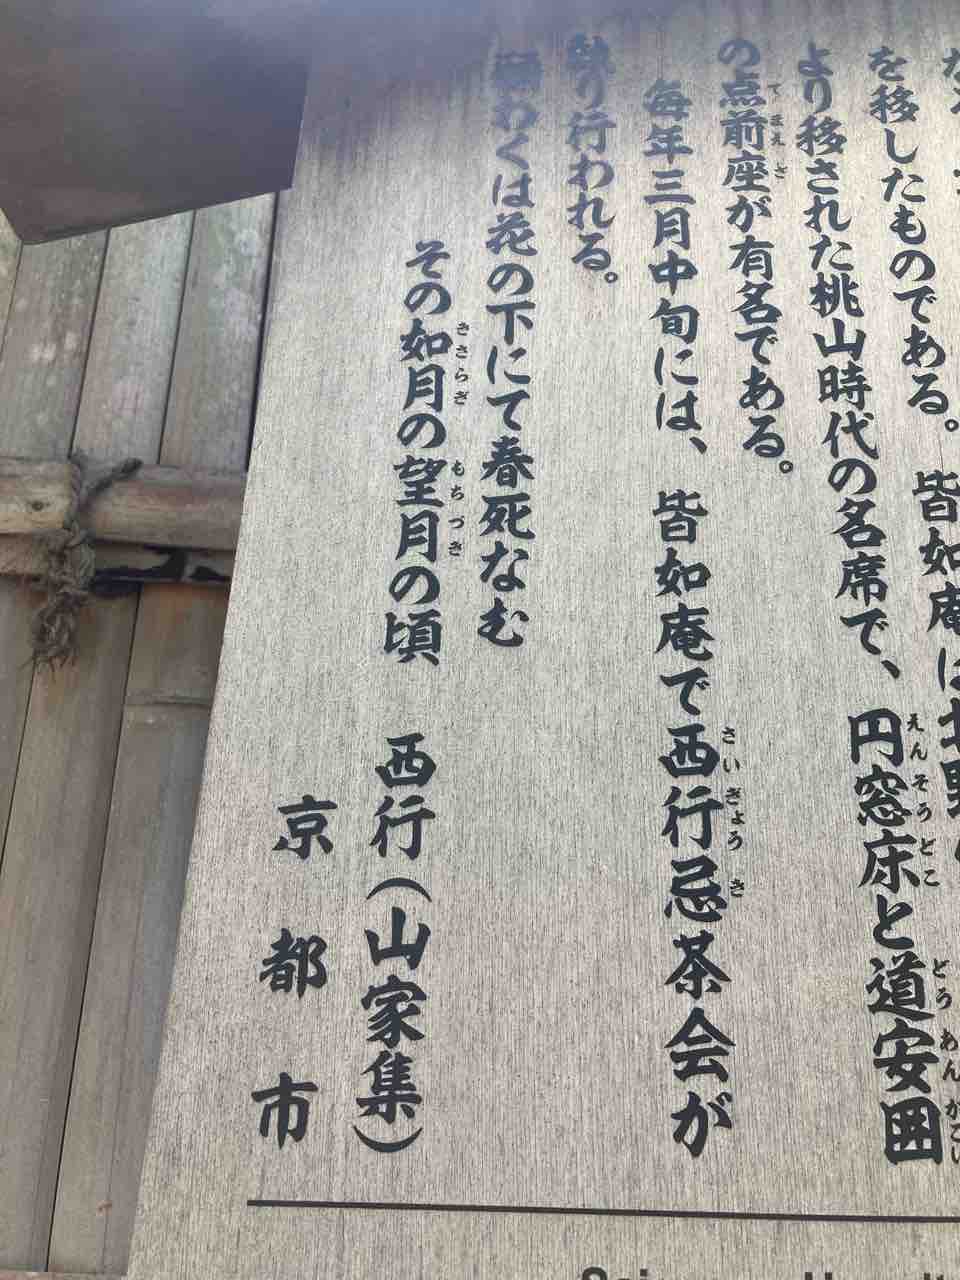 を移したものである。 皆如庵は北野
より移された桃山時代の名席で、円窓床と道安囲
の点前座が有名である。
毎年三月中旬には、皆如庵で西行忌茶会が
執り行われる。
願わくは花の下にて春死なむ
その如月の望月の頃 西行(山家集)
京都市